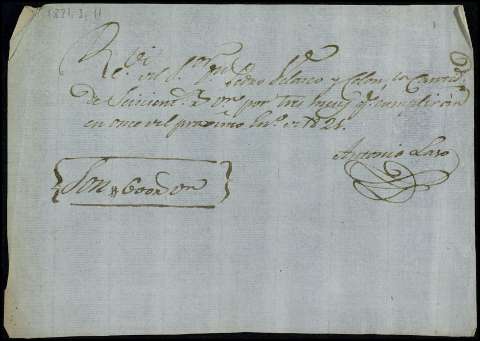 1821, 3, 11
Reciví del Sr. Dn. Pedro Velasco y Colón, la Cantd.
de Seiscient.s Rs. vn por tres meses q.e cumplirán
en once del proximo En.o de 1821.
Antonio Laso
Son Rs 600 vn